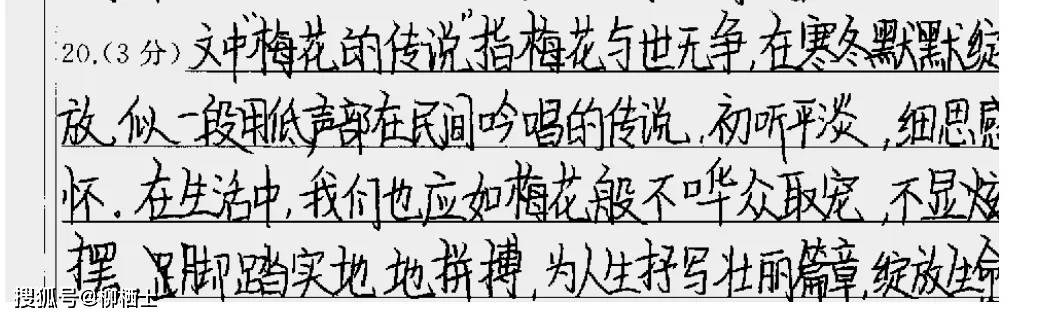 20.(3分)文中“梅花的传说”指梅花与世无争,在寒冬默默绽
放,似一段用低声部在民间吟唱的传说,初听平淡,细思感
怀。在生活中,我们也应如梅花般不哗众取宠,不显炫
摆,脚踏实地地拼搏,为人生抒写壮丽篇章,绽放生命
搜狐号@柳栖士